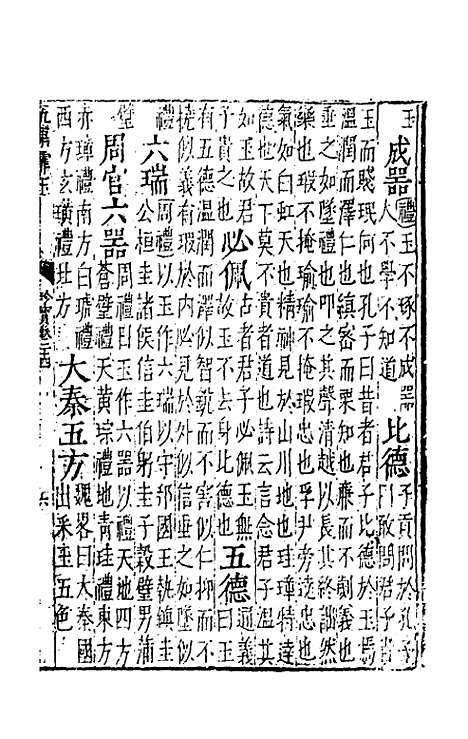 玉 成器 禮玉不琢不成器人不學不知道 比德 子貢問於孔子曰敢問君子貴
玉而賤珉何也孔子曰昔者君子比德於玉焉
溫潤而澤仁也縝密而栗知也廉而劌義也
垂之如墜禮也叩之其聲清越以長其終詘然
樂也瑕不掩瑜瑜不掩瑕忠也孚尹旁達忠也
氣如白虹天也精神見於山川地也珪璋特達
德也天下莫不貴者道也詩云言念君子溫其
如玉故君子貴之也 必佩 古者君子必佩玉無故玉不去身比德也 五德 通義曰玉
有五德溫潤而澤似智銳而不害似仁抑而不
撓似義有瑕於內必見於外似信垂之如墜似
禮 六瑞 周禮以玉作六瑞以守邦國王執鎮圭公桓圭諸侯信圭伯躬圭子穀璧男蒲
璧 周官六器 周禮曰玉作六器以禮天地四方蒼璧禮天黃琮禮地青珪禮東方
赤璋禮南方白琥禮西方玄璜禮北方 大秦五方 魏畧曰大秦國出采玉五色